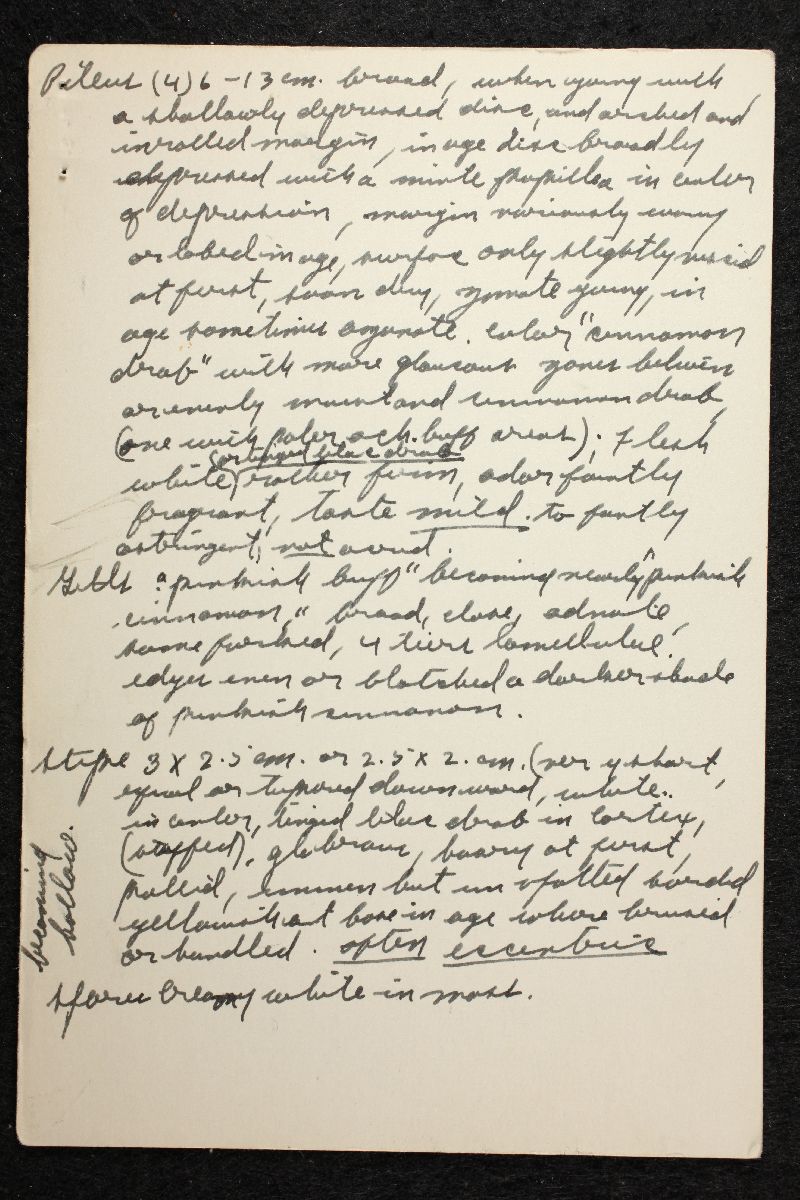 Pileus (4) 6 - 13 cm. broad, when young with
a shallowly depressed disc, and arched and
inrolled margin, in age disc broadly
depressed with a minte papilla in center
of depression, margin variously wavy
or lobed in age, surface only slightly viscid
at first, soon dry, zonate young, in
age sometimes azonate. Color "cinnamon
drab" with more glaucous zones between
or evenly and cinnamon drab,
(one with paler och. buff areas); Flesh
(or tinged lilac drab
white) rather firm, odor faintly
fragrant, taste mild. to faintly
astringent, not acrid.
Gills "pinkish buff" becoming nearly "pinkish
cinnamon," broad, close, adnate,
some forked, 4 tiers lamellulae,
edges even or blotched a darker shade
of pinkish cinnamon.
Stipe 3 x 2.5 cm. or 2.5 x 2. cm. (very short,
equal or tapered downward, white
in center, tinged lilac drab in cortex,
(stuffed), glabrous, hoary at first,
pallid, uneven but unspotted sordid
yellowish at base in age where bruised
or handled. often eccentric
becoming
hollow.
Spores creamy white in mass.